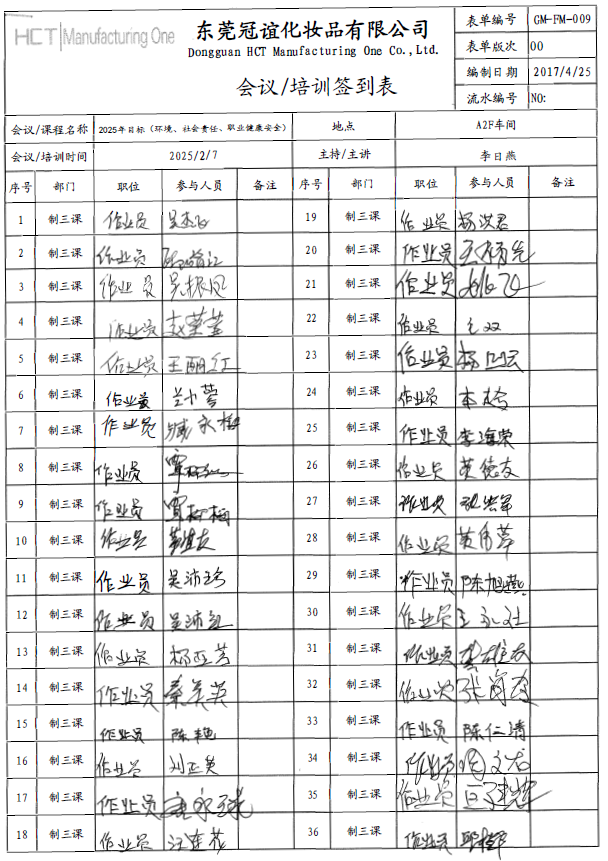 HCT Manufacturing One
东莞冠谊化妆品有限公司
Dongguan HCT Manufacturing One Co.,Ltd.
会议/培训签到表
表单编号 GM-FM-009
表单版次 00
编制日期 2017/4/25
流水编号 NO:
会议/课程名称 2025年目标（环境、社会责任、职业健康安全） 地点 A2F车间
会议/培训时间 2025/2/7 主持/主讲 李日燕
序号 部门 职位 参与人员 备注 序号 部门 职位 参与人员 备注
1 制三课 作业员 19 制三课 作业员 杨洪君
2 制三课 作业员 20 制三课 作业员
3 制三课 作业员 吴振凤 21 制三课 作业员
4 制三课 作业员 赵莹莹 22 制三课 作业员
5 制三课 作业员 王丽红 23 制三课 作业员
6 制三课 作业员 兰小莺 24 制三课 作业员
7 制三课 作业员 25 制三课 作业员 李海荣
8 制三课 作业员 26 制三课 作业员 黄德友
9 制三课 作业员 覃柳梅 27 制三课 作业员
10 制三课 作业员 28 制三课 作业员
11 制三课 作业员 吴沛珍 29 制三课 作业员 陈旭燕
12 制三课 作业员 30 制三课 作业员
13 制三课 作业员 杨亚芳 31 制三课 作业员
14 制三课 作业员 秦美英 32 制三课 作业员
15 制三课 作业员 陈艳 33 制三课 作业员 陈仁清
16 制三课 作业员 刘正英 34 制三课 作业员 周文龙
17 制三课 作业员 35 制三课 作业员
18 制三课 作业员 汪连花 36 制三课 作业员